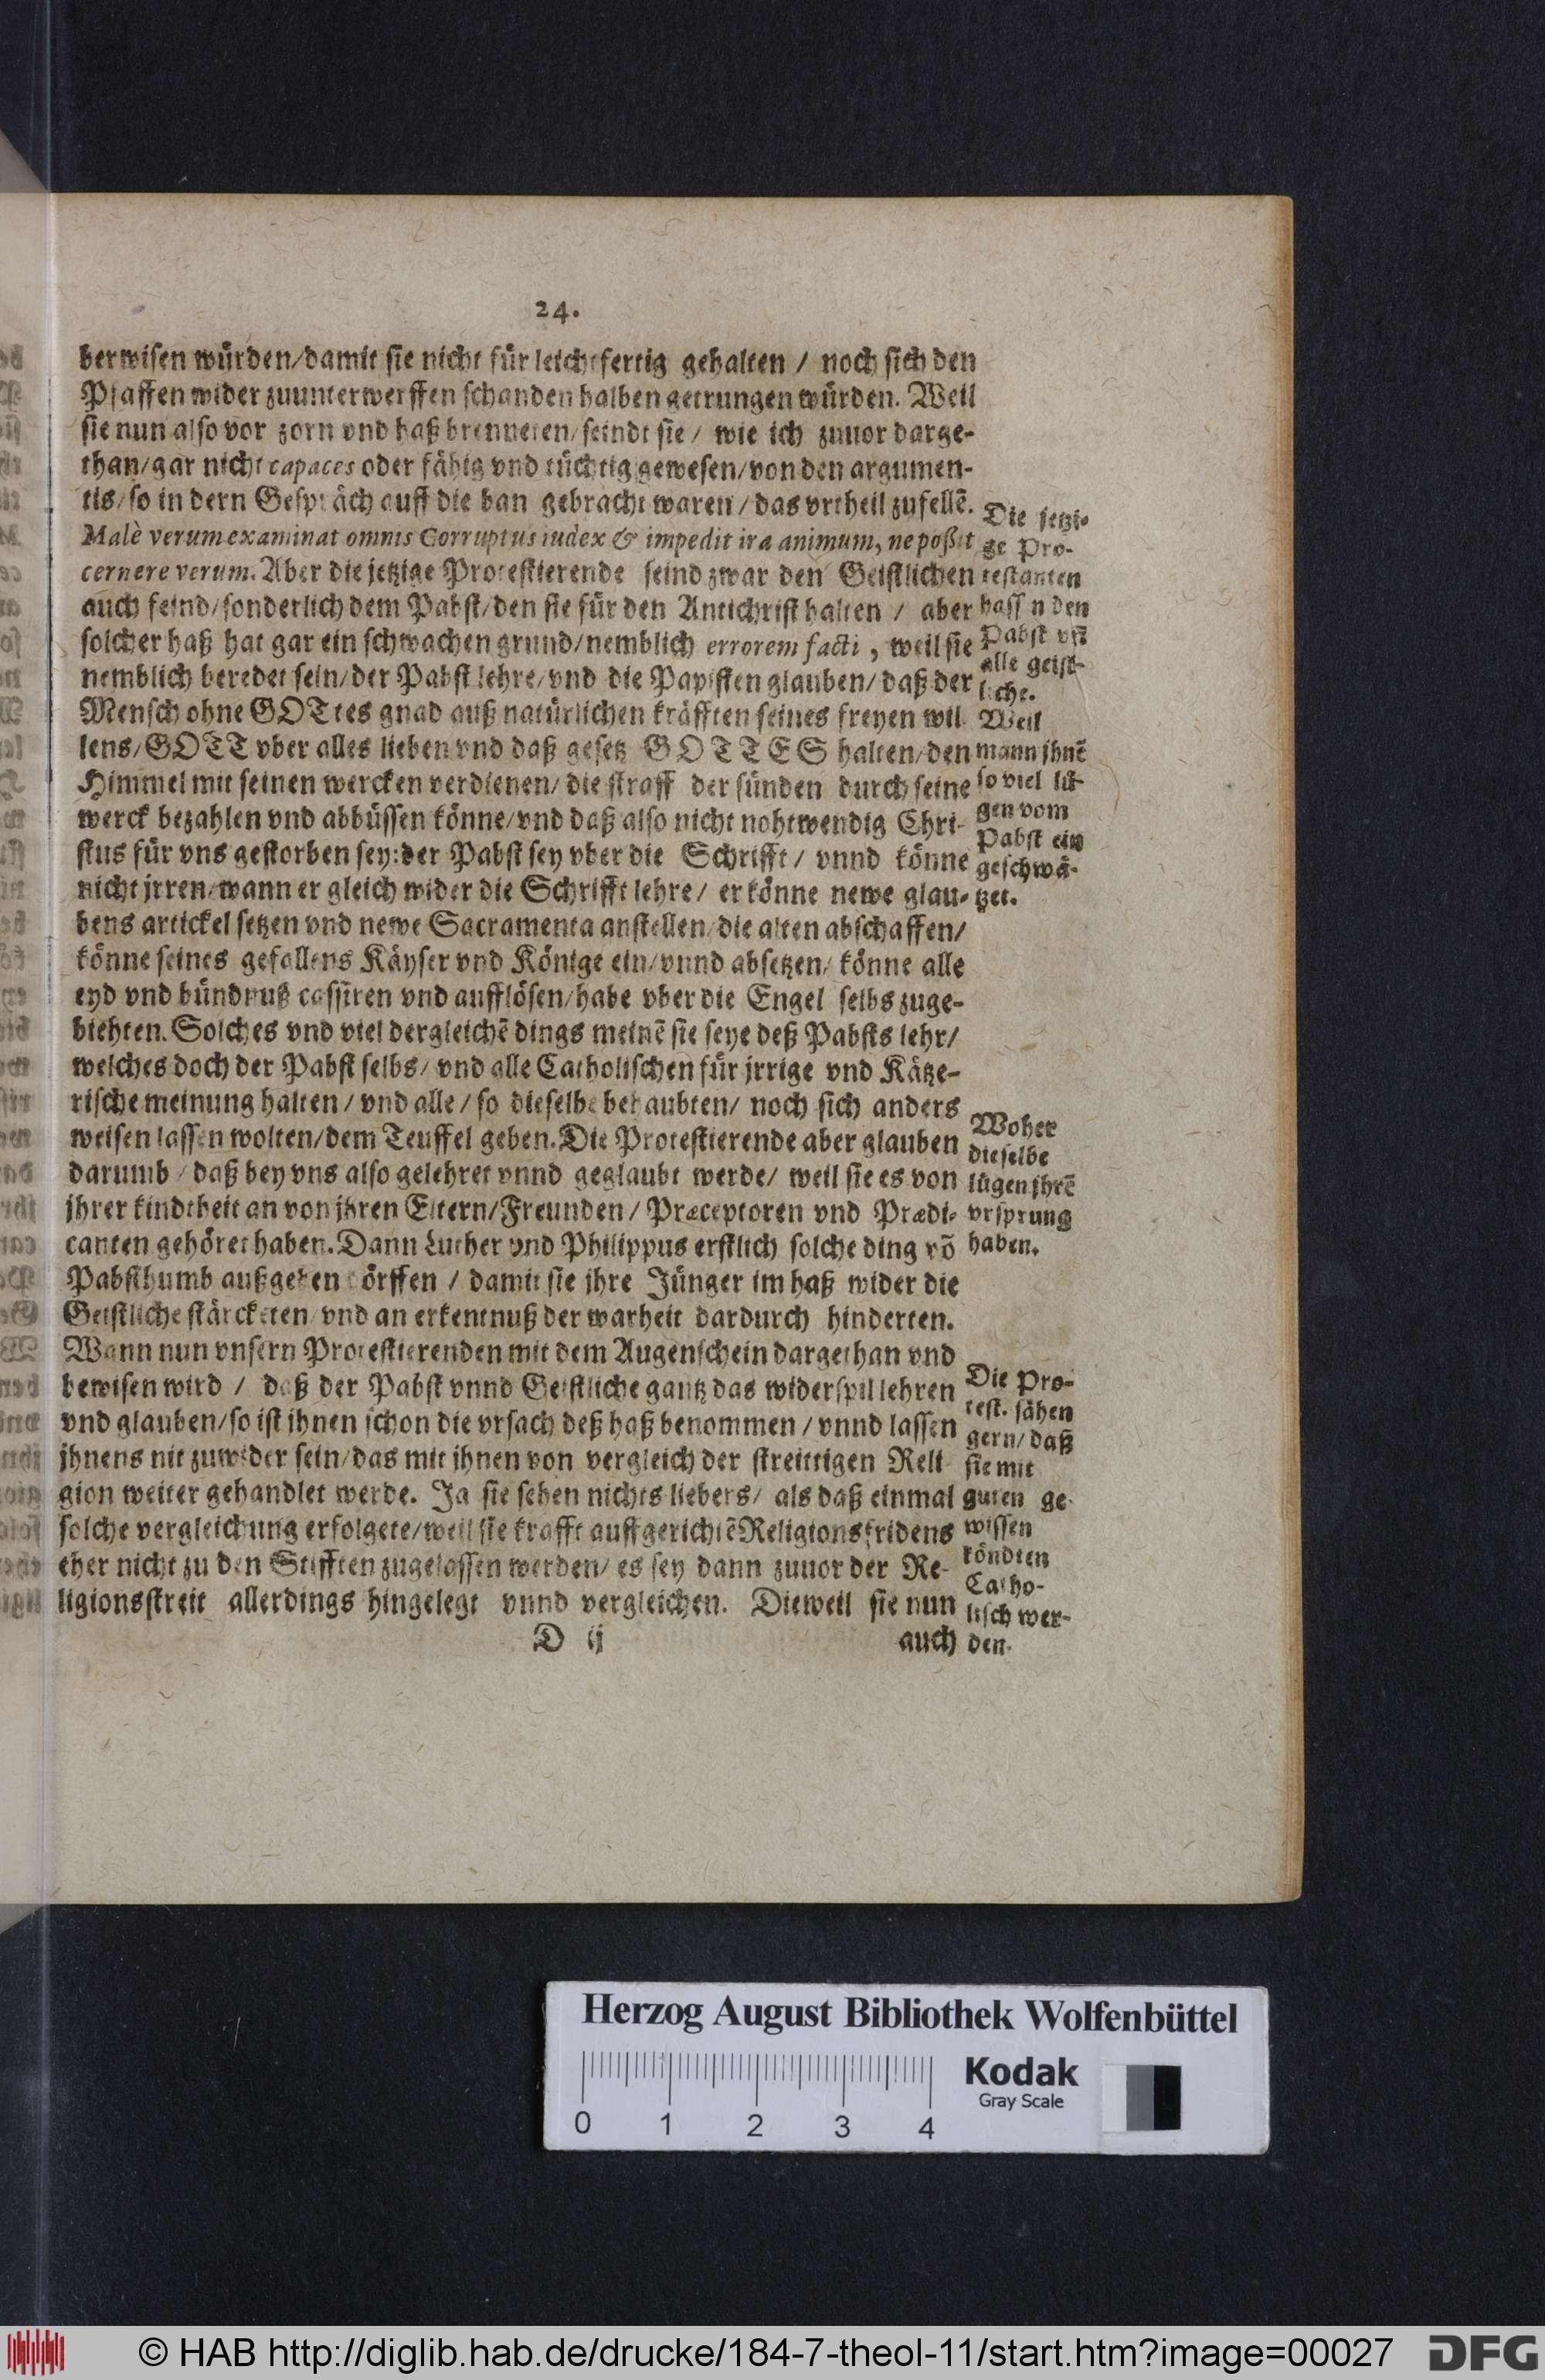 24.
berwisen würden/damit sie nicht für leichtfertig gehalten / noch sich den
Pfaffen wider zuunterwerffen schanden halben getrungen würden. Weil
sie nun also vor zorn vnd haß brenneten/seindt sie / wie ich zuuor darge-
than/gar nicht capaces oder fähig vnd tüchtig gewesen/von den argumen-
tis/so in dern Gespräch auff die ban gebracht waren / das vrtheil zufellẽ.
Malè verum examinat omnis Corruptus iudex & impedit ira animum, ne poßit
cernere verum. Aber die jetzige Protestierende seind zwar den Geistlichen
auch feind/sonderlich dem Pabst/den sie für den Antichrist halten / aber
solcher haß hat gar ein schwachen grund/nemblich errorem facti, weil sie
nemblich beredet sein/der Pabst lehre/vnd die Papisten glauben/daß der
Mensch ohne GOTtes gnad auß natürlichen kräfften seines freyen wil-
lens/GOTT vber alles lieben vnd daß gesetz GOTTES halten/den
Himmel mit seinen wercken verdienen/die straff der sünden durch seine
werck bezahlen vnd abbüssen könne/vnd daß also nicht nohtwendig Chri-
stus für vns gestorben sey:der Pabst sey vber die Schrifft / vnnd könne
nicht jrren/wann er gleich wider die Schrifft lehre / er könne newe glau-
bens artickel setzen vnd newe Sacramenta anstellen/die alten abschaffen/
könne seines gefallens Käyser vnd Könige ein/vnnd absetzen/ könne alle
eyd vnd bündnuß cassiren vnd aufflösen/habe vber die Engel selbs zuge-
biehten. Solches vnd viel dergleichẽ dings meinẽ sie seye deß Pabsts lehr/
welches doch der Pabst selbs/ vnd alle Catholischen für jrrige vnd Kätze-
rische meinung halten / vnd alle / so dieselbe behaubten/ noch sich anders
weisen lassen wolten/dem Teuffel geben. Die Protestierende aber glauben
darumb / daß bey vns also gelehret vnnd geglaubt werde/ weil sie es von
jhrer kindtheit an von jhren Eltern/Freunden / Præceptoren vnd Prædi-
canten gehöret haben. Dann Luther vnd Philippus erstlich solche ding võ
Pabsthumb außgeben dörffen / damit sie jhre Jünger im haß wider die
Geistliche stärcketen vnd an erkentnuß der warheit dardurch hinderten.
Wann nun vnsern Protestierenden mit dem Augenschein dargethan vnd
bewisen wird / daß der Pabst vnnd Geistliche gantz das widerspil lehren
vnd glauben/so ist jhnen schon die vrsach deß haß benommen / vnnd lassen
jhnens nit zuwider sein/das mit jhnen von vergleich der streittigen Reli-
gion weiter gehandlet werde. Ja sie sehen nichts liebers/ als daß einmal
solche vergleichung erfolgete/weil sie krafft auffgerichtẽ Religionsfridens
eher nicht zu den Stifften zugelassen werden/ es sey dann zuuor der Re-
ligionsstreit allerdings hingelegt vnnd vergleichen. Dieweil sie nun
D ij
auch
Die jetzi-
ge Pro-
testanten
hassen den
Pabst vñ
alle geist-
liche.
Weil
mann jhnẽ
so viel lü-
gen vom
Pabst ein
geschwä-
tzet.
Woher
dieselbe
lügen jhrẽ
vrsprung
haben.
Die Pro-
test. sähen
gern/daß
sie mit
guten ge-
wissen
köndten
Catho-
lisch wer-
den.
Herzog August Bibliothek Wolfenbüttel
Kodak
Gray Scale
0 1 2 3 4
© HAB http://diglib.hab.de/drucke/184-7-theol-11/start.htm?image=00027
DFG